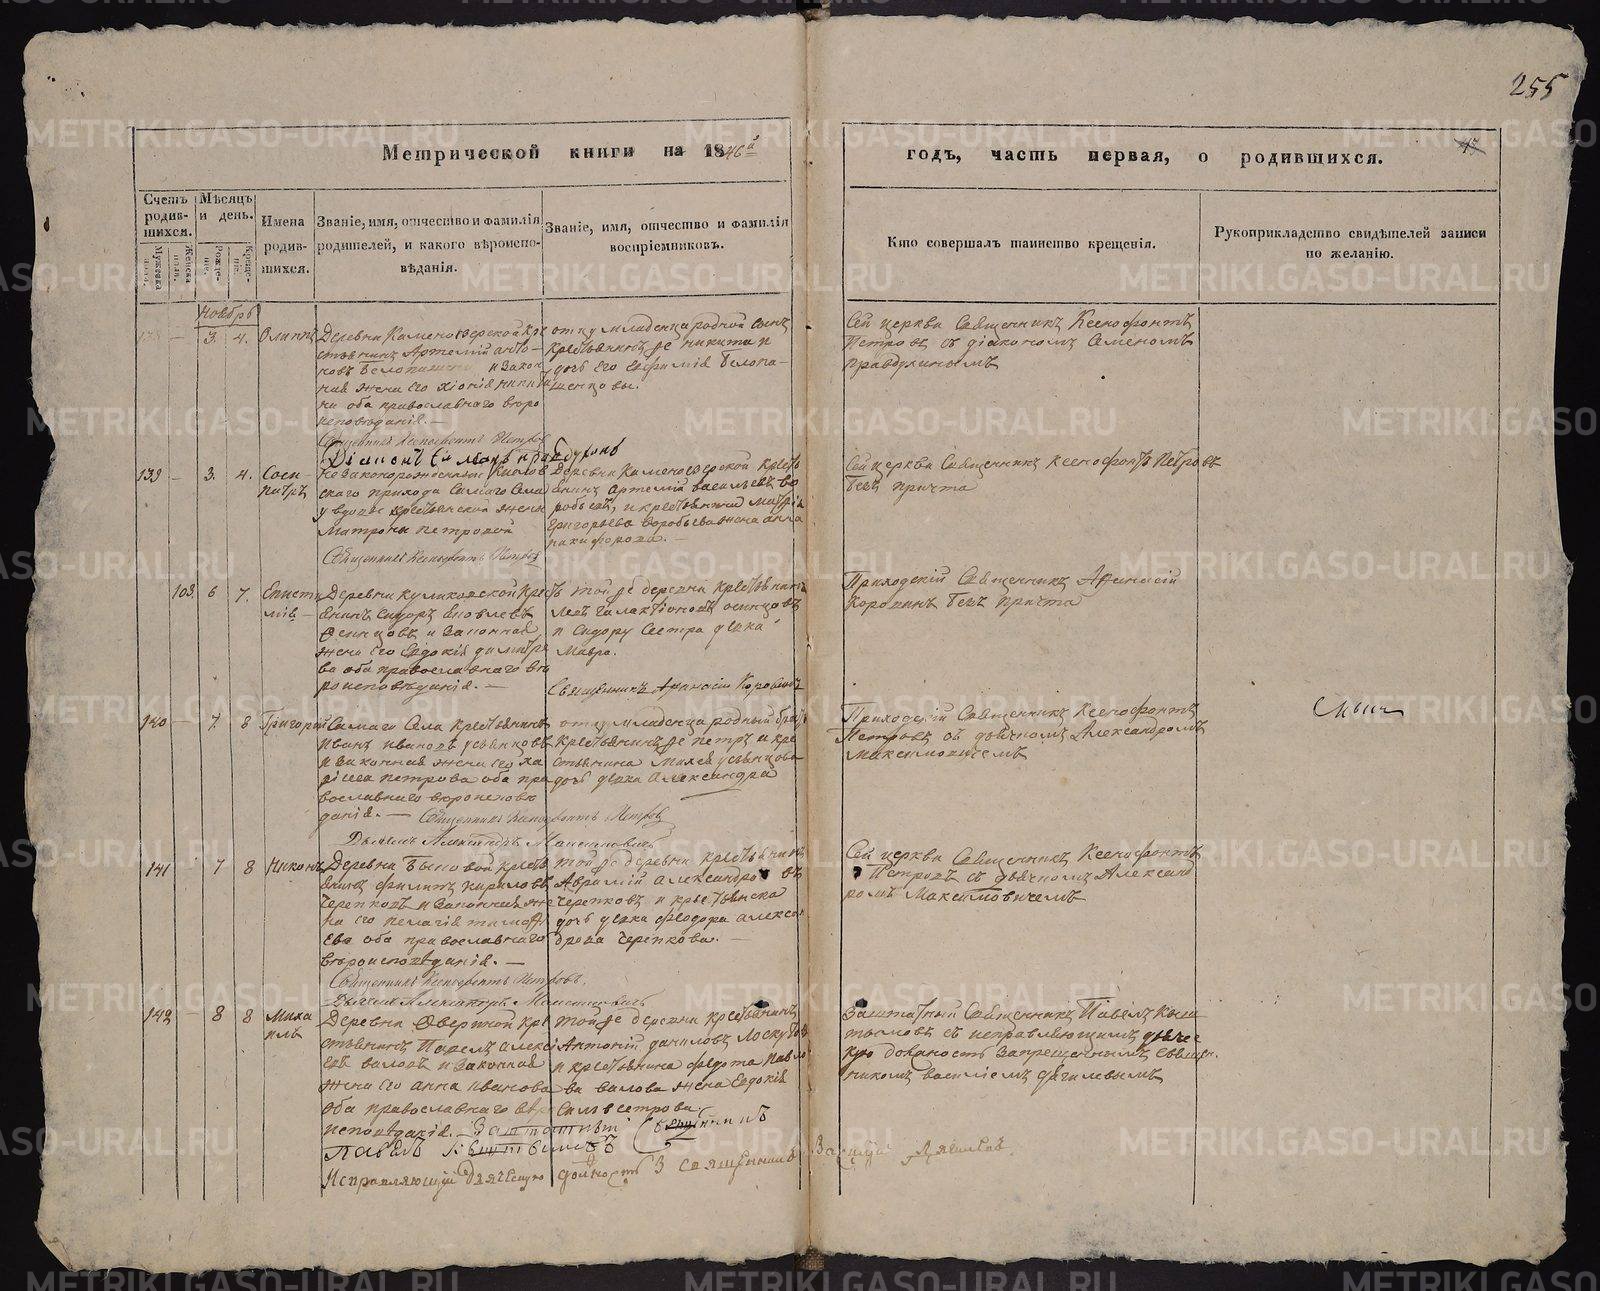 255
Метрической книги на 1846й
годъ, часть первая, о родившихся.
Счетъ родившихся.
Мѣсяцъ и день.
Имена родившихся.
Званіе, имя, отчество и фамилія родителей, и какого вѣроисповѣданія.
Званіе, имя, отчество и фамилія воспріемниковъ.
Кто совершалъ таинство крещенія.
Рукоприкладство свидѣтелей записи по желанію.
Мужеска пола.
Женска пола.
Рожденіе.
Крещеніе.
Ноябрь
138 — 3. 4.
Деревни Каменоозерской кре
стьянинъ Артемій
и закон
ная жена его Хіонія Никити
на оба православнаго вѣро
исповѣданія. —
Священникъ Ксенофонтъ Петровъ
отцу младенца родной сынъ
крестьянинъ же Никита и
дочь его Евфимія Белопа-
шенцовы.
Сей церкви Священникъ Ксенофонтъ
Петровъ съ діакономъ Семеномъ
Правдухинымъ
139 — 3. 4. Соси
патръ
Незаконорожденный
скаго прихода Самаго Села
у вдовы крестьянской жены
Матроны Петровой
Священникъ Ксенофонтъ Петровъ
Деревни Каменоозерской кресть
янинъ Артемій Васильевъ Во
робьевъ, и крестьянина
Григорьева Воробьева жена Анна
Никифорова. —
Сей церкви Священникъ Ксенофонтъ Петровъ
безъ причта
103. 6 7. Еписти
мія —
Деревни Куликовской крест
янинъ Сидоръ Яковлевъ
Осинцовъ и законная
жена его Евдокія Димитріе
ва оба православнаго вѣ
роисповѣданія. —
той же деревни крестьянинъ
Левъ Галактіоновъ Осинцовъ
и Сидору Сестра девка
Мавра.
Священникъ Афанасій Коровинъ
Приходскій Священникъ Афанасій
Коровинъ безъ причта
140 — 7. 8 Григорій
Самаго Села крестьянинъ
Иванъ Ивановъ Усынцовъ
и законная жена его Ха
рисса Петрова оба пра
вославнаго вѣроисповѣ
данія. — Священникъ Ксенофонтъ Петровъ
Дьячекъ Александръ Максимовичь
отцу младенца родный братъ
крестьянинъ же Петръ и кре
стьянина Михея Усынцова
дочь девка Александра
Приходскій Священникъ Ксенофонтъ
Петровъ съ дьячкомъ Александромъ
Максимовичемъ
141 — 7 8 Никонъ
Деревни Быковой кресть
янинъ Филипъ Кириловъ
Черепковъ и законная же
на его Пелагія Тимофѣ
ева оба православнаго
вѣроисповѣданія. —
Священникъ Ксенофонтъ Петровъ.
Дьячекъ Александръ Максимовичь
той же деревни крестьянинъ
Аврамій Александровъ
Черепковъ и крестьянска
дочь девка Феодора Алексан
дрова Черепкова. —
Сей церкви Священникъ Ксенофонтъ
Петровъ съ дьячкомъ Александ
ромъ Максимовичемъ
142 — 8 8 Миха
илъ
Деревни Овериной кре
стьянинъ Павелъ Алексі
евъВаловъ и законная
жена его Анна Иванова
оба православнаго вѣро
исповѣданія. — Заштатный Священникъ
Павелъ Кыштымовъ
Исправляющій Дьячецкую должность З Священникъ Василій
той же деревни крестьянинъ
Антоній Даниловъ Лоскутовъ
и крестьянина Федота Павло
ва Валова жена Евдокія
Сильвестрова.
Заштатный Священникъ Павелъ Кыш
тымовъ съ исправляющимъ дьяче
кую должность Запрещеннымъ Священ
никомъ Василіемъ Дягилевымъ